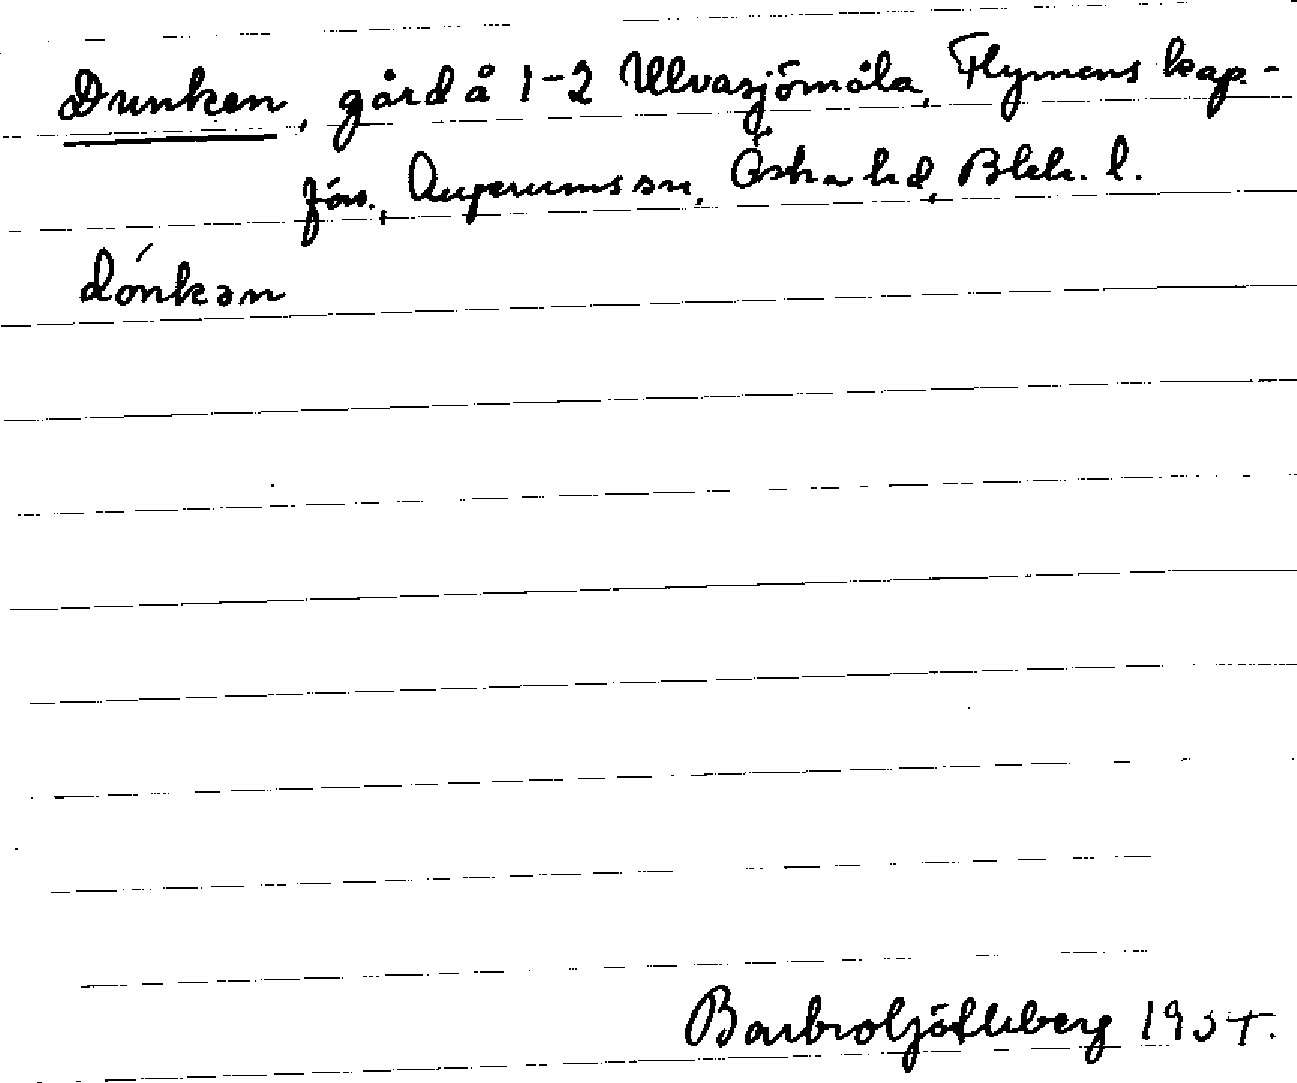 Drunken, gård å 1-2 Ulvasjömåla, Flymens kap.-
förs., Augerums sn, Östra hd, Blek. l.
dónkən
Barbro Söderberg 1954.